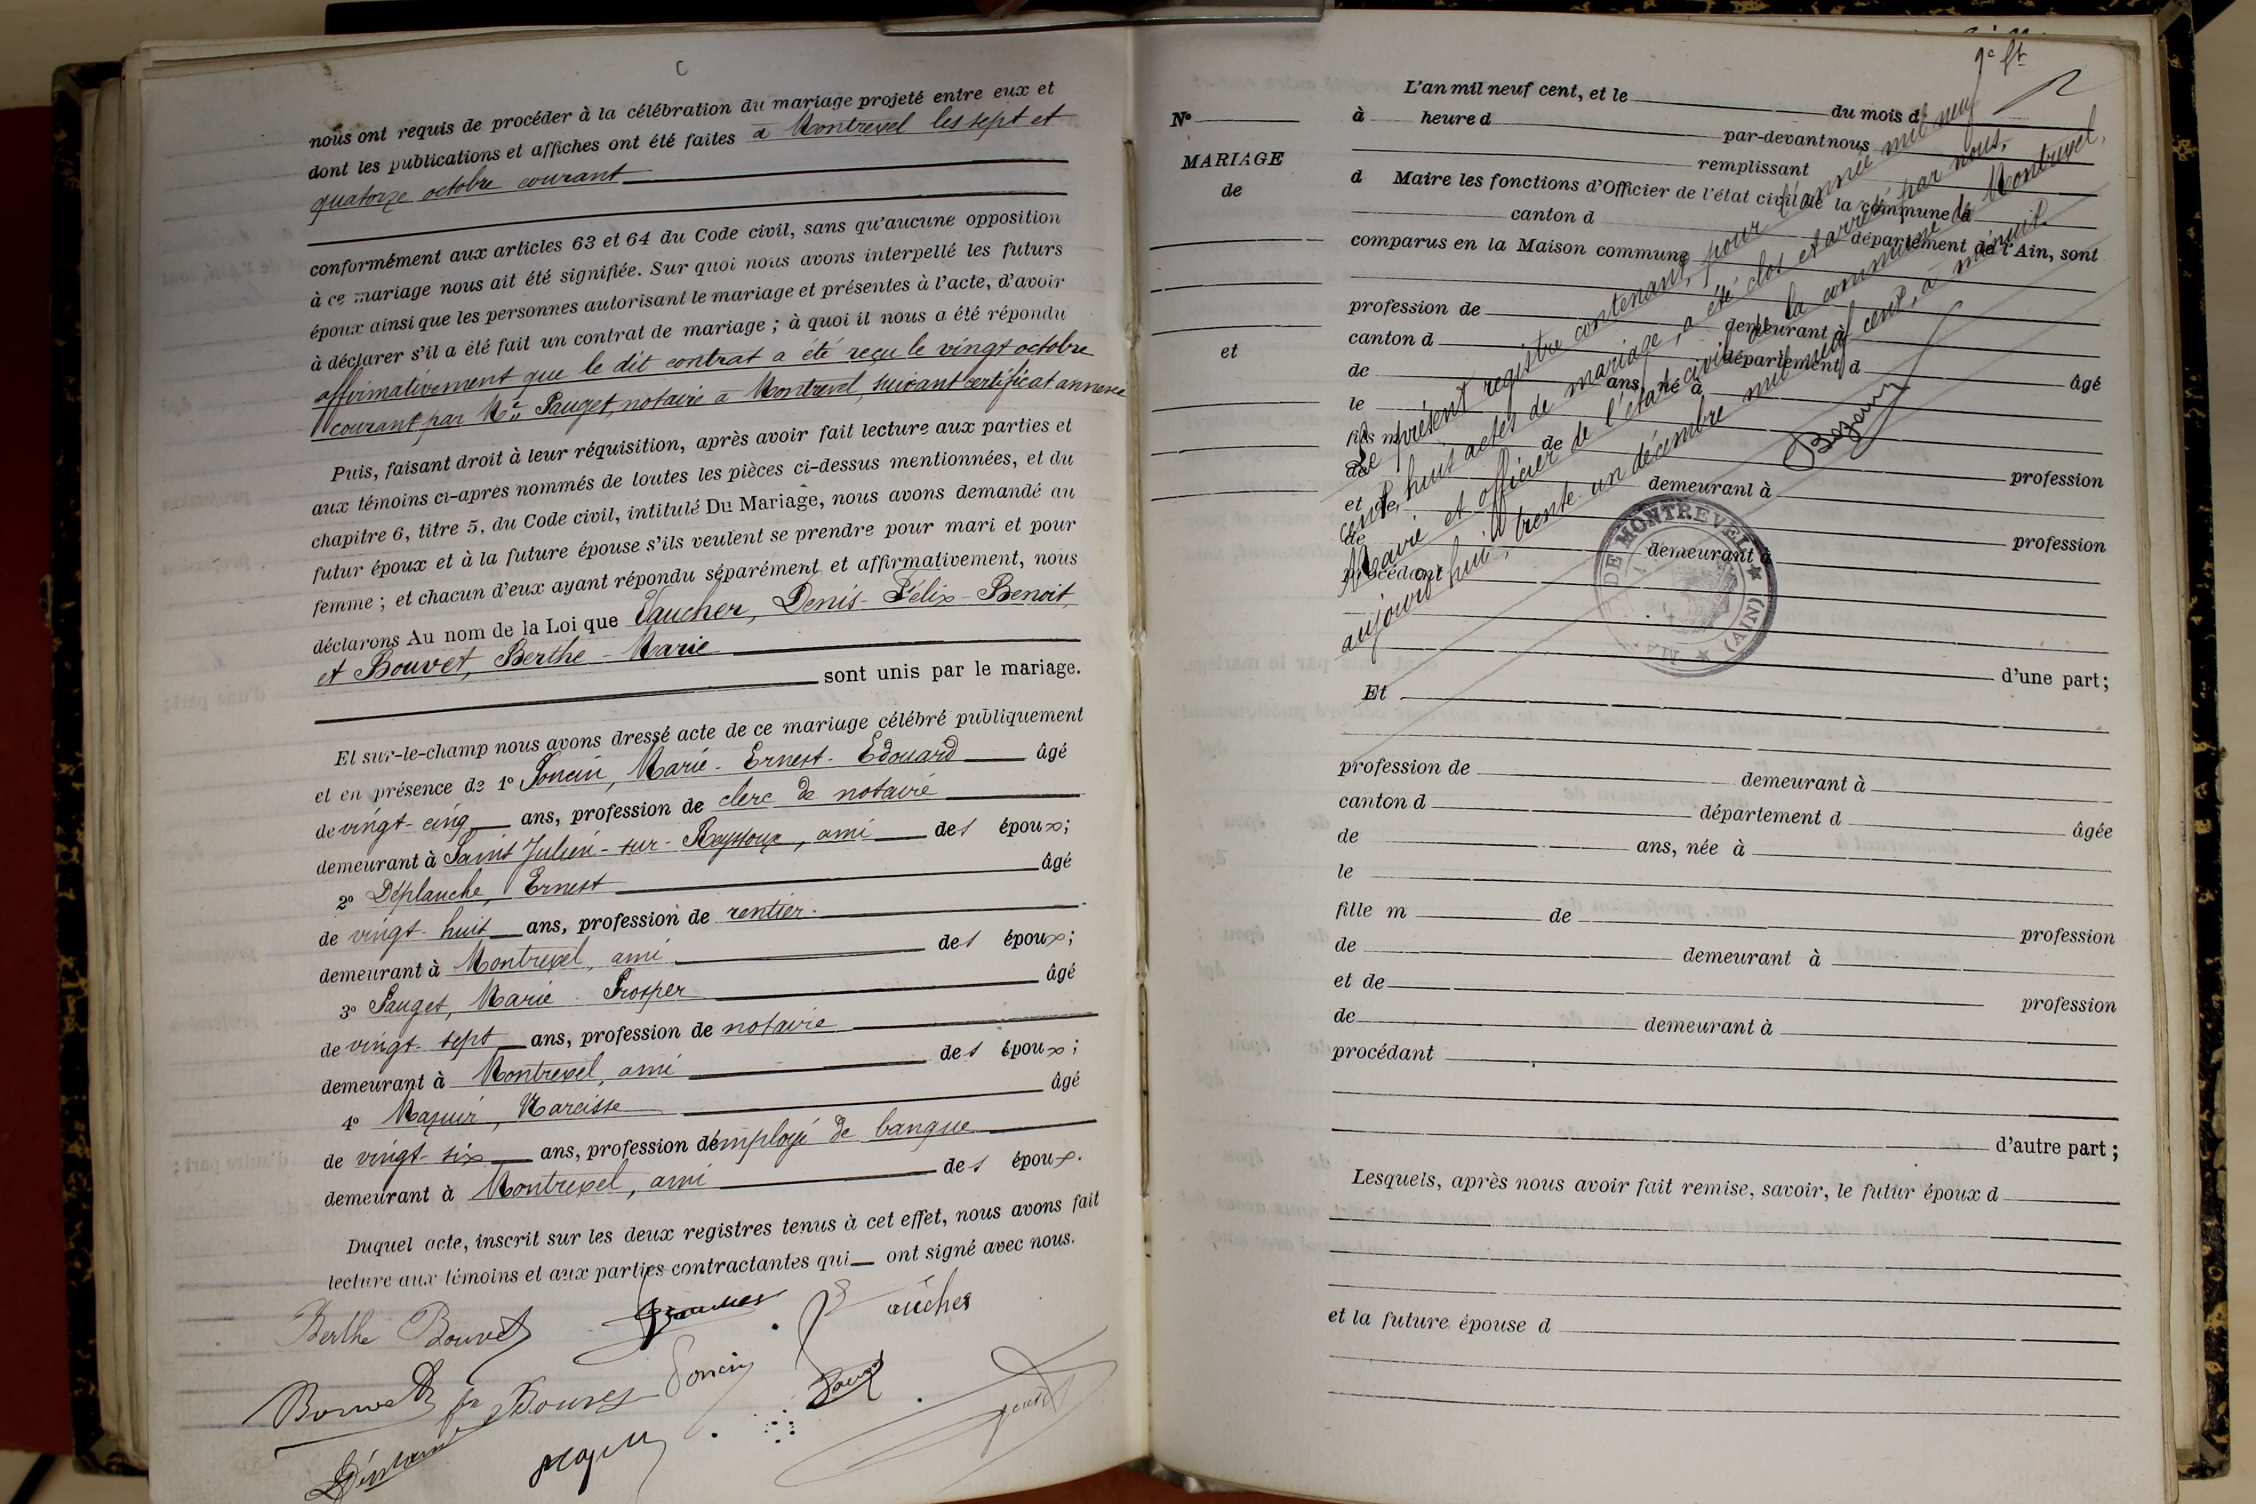 C
nous ont requis de procéder à la célébration du mariage projeté entre eux et
dont les publications et affiches ont été faites à Montrevel les sept et
quatorze octobre courant
conformément aux articles 63 et 64 du Code civil, sans qu'aucune opposition
à ce mariage nous ait été signifiée. Sur quoi nous avons interpellé les futurs
époux ainsi que les personnes autorisant le mariage et présentes à l'acte, d'avoir
à déclarer s'il a été fait un contrat de mariage ; à quoi il nous a été répondu
affirmativement que le dit contrat a été reçu le vingt octobre
courant par Me Pauget, notaire à Montrevel, suivant certificat annexé
Puis, faisant droit à leur réquisition, après avoir fait lecture aux parties et
aux témoins ci-après nommés de toutes les pièces ci-dessus mentionnées, et du
chapitre 6, titre 5, du Code civil, intitulé Du Mariage, nous avons demandé au
futur époux et à la future épouse s'ils veulent se prendre pour mari et pour
femme ; et chacun d'eux ayant répondu séparément et affirmativement, nous
déclarons Au nom de la Loi que Vaucher, Denis-Félix-Benoit,
et Bouvet, Berthe-Marie
sont unis par le mariage.
Et sur-le-champ nous avons dressé acte de ce mariage célébré publiquement
et en présence de 1° Poncin, Marie-Ernest-Edouard âgé
de vingt-cinq ans, profession de clerc de notaire
demeurant à Saint Julien-sur-Reyssouze, ami des époux;
2° Déplanche, Ernest âgé
de vingt-huit ans, profession de rentier
demeurant à Montrevel, ami des époux;
3° Pauget, Marie Prosper âgé
de vingt-sept ans, profession de notaire
demeurant à Montrevel, ami des époux;
4° Mazuir, Narcisse âgé
de vingt-six ans, profession d'employé de banque
demeurant à Montrevel, ami des époux.
Duquel acte, inscrit sur les deux registres tenus à cet effet, nous avons fait
lecture aux témoins et aux parties contractantes qui ont signé avec nous.
Berthe Bouvet Vaucher
Bouvet Bouvet Poncin
Déplanche
N°
MARIAGE
de
et
L'an mil neuf cent, et le du mois d
à heure d par-devant nous
remplissant
d Maire les fonctions d'Officier de l'état civil de la commune d
canton d département de l'Ain, sont
comparus en la Maison commune
profession de demeurant à
canton d département d
de ans, né à âgé
le
fils m de
de demeurant à profession
et de
de demeurant à profession
procédant
d'une part;
Le présent registre contenant, pour l'année mil neuf
cent, huit actes de mariage, a été clos et arrêté par nous,
Maire et officier de l'état civil de la commune de Montrevel,
aujourd'hui, trente-un décembre mil neuf cent, à minuit.
DE MONTREVEL (AIN)
Et
profession de demeurant à
canton d département d
de ans, née à âgée
le
fille m de
de demeurant à profession
et de
de demeurant à profession
procédant
d'autre part;
Lesquels, après nous avoir fait remise, savoir, le futur époux d
et la future épouse d